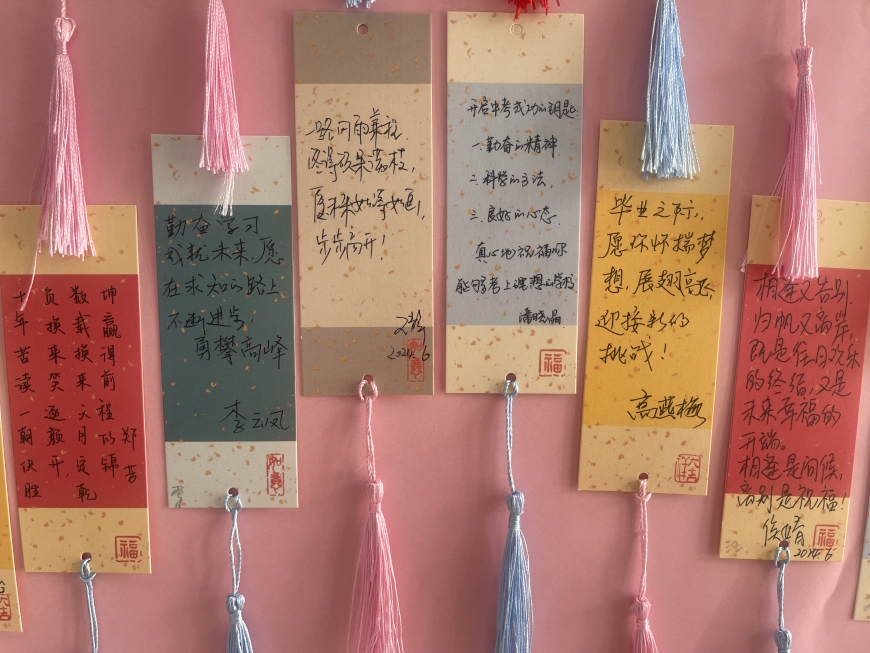 十年苦读一朝决胜
负换来笑逐颜开
数载换来六月定乾
坤赢得前程似锦
郑
福
勤奋学习
成就未来,愿
在求知的路上
不断进步,
勇攀高峰
李云凤
如意
一路风雨兼程,
终得硕果满枝,
愿未来如
步步高升!
2024.6
如意
开启中考成功的钥匙.
一.勤奋的精神
二.科学的方法,
三.良好的心态
真心地祝福你
能够考上理想的学校
潘晓晶
福
毕业之际,
愿你怀揣梦
想,展翅高飞,
迎接新的
挑战!
高燕梅
大吉
相逢又告别,
归帆又离岸,
既是往日欢乐
的终结,又是
未来幸福的
开端。
相逢是问候,
离别是祝福!
2024.6
福
大吉